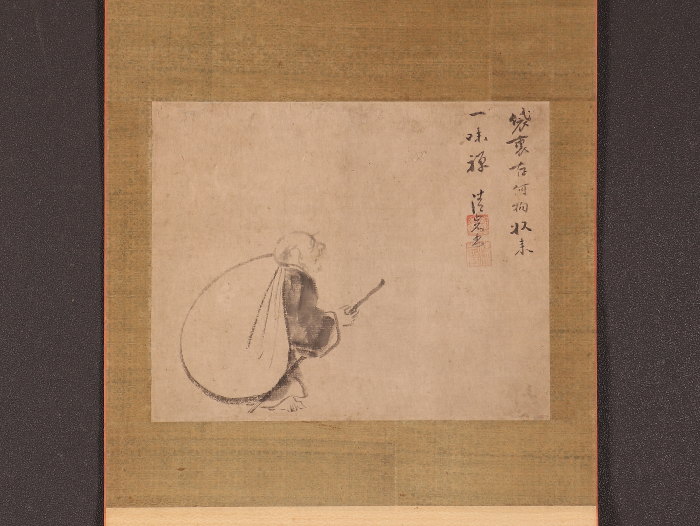 袋裏有何物収来
一味禅 清岩